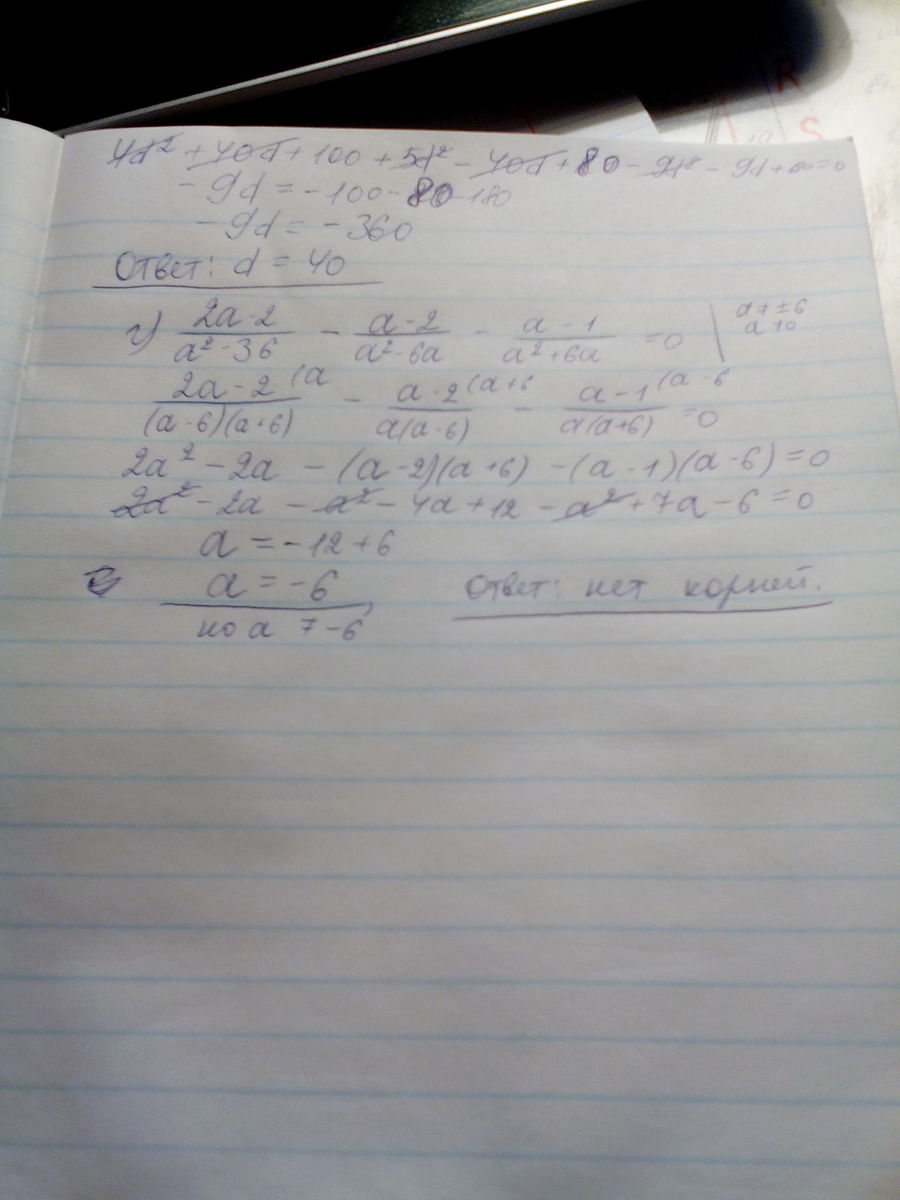 4d² + 40d + 100 + 5d² - 40d + 80 - 9d² - 9d + =0
- 9d = -100 - 80 - 180
- 9d = - 360
Ответ: d = 40
г) (2a-2)/(a²-36) - (a-2)/(a²-6a) - (a-1)/(a²+6a) =0 | a≠±6
a≠0
(2a-2)/((a-6)(a+6)) (a - (a-2)/(a(a-6)) (a+6 - (a-1)/(a(a+6)) (a-6 =0
2a² - 2a - (a-2)(a+6) - (a-1)(a-6) = 0
2a² - 2a - a² - 4a + 12 - a² + 7a - 6 = 0
a = -12 + 6
a = -6,
но a ≠ -6
Ответ: нет корней.